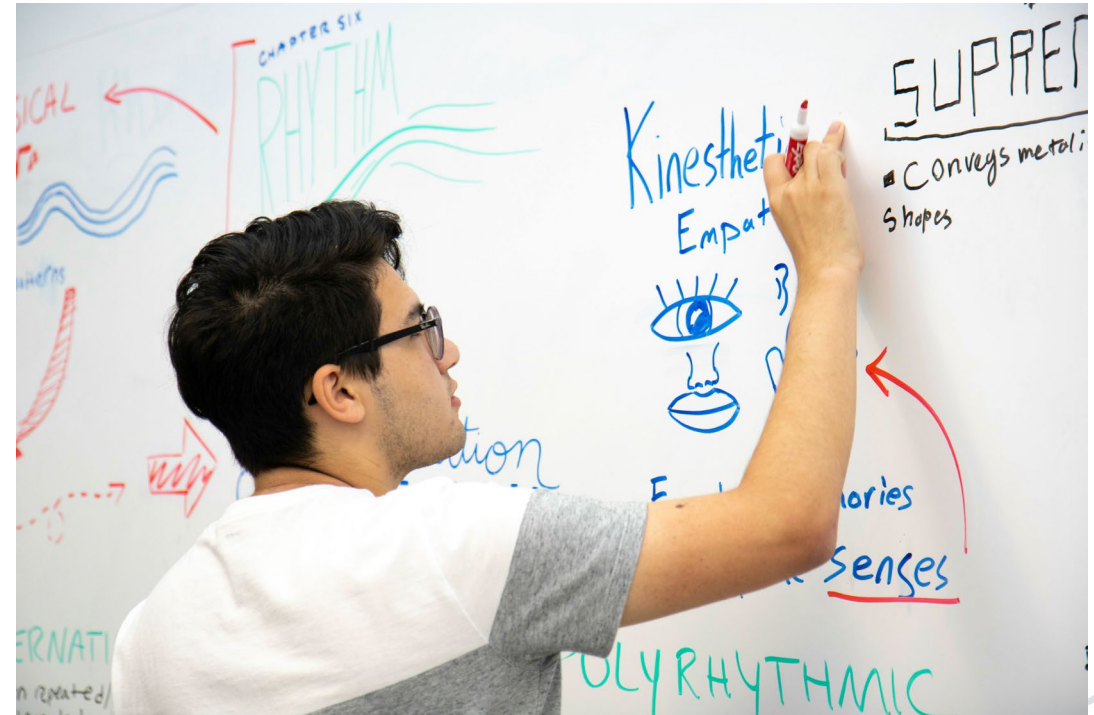 CHAPTER SIX
RHYTHM
SICAL
Kinestheti
Empat
SUPREM
▪ Conveys metali
shapes
tion
ories
Senses
ERNATI
n repeated/
POLYRHYTHMIC